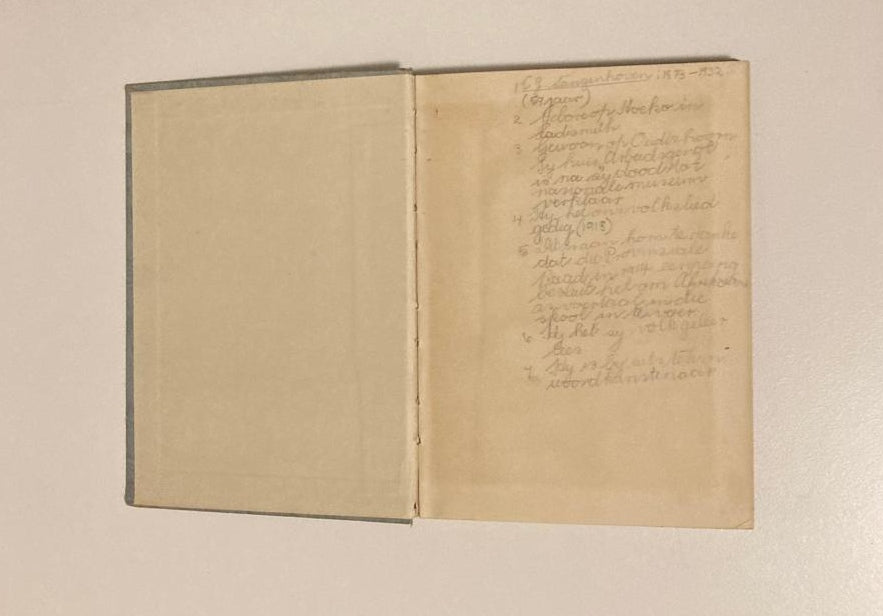 Langenhoven : 1873 – 1932
(59 jaar)
2 Gebore op Hoeko in
Ladismith
3 Gewoon op Oudtshoorn
Sy huis Arbeidsgenot
is na sy dood tot
nasionale museum
verklaar
4 Hy het ons volkslied
gedig (1918)
5 aan hom te danke
dat die Provinsiale
Raad in 1914
besluit het om Afrikaans
as voertaal in die
skool in te voer
6 Hy het sy volk geleer
lees
7 Hy is by uitstek 'n
woordkunstenaar